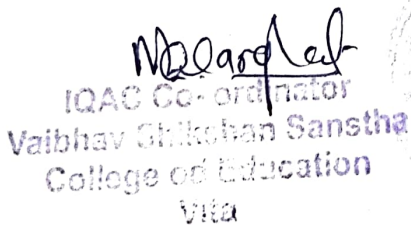 IQAC Co-ordinator
Vaibhav Shikshan Sanstha
College od Education
Vita